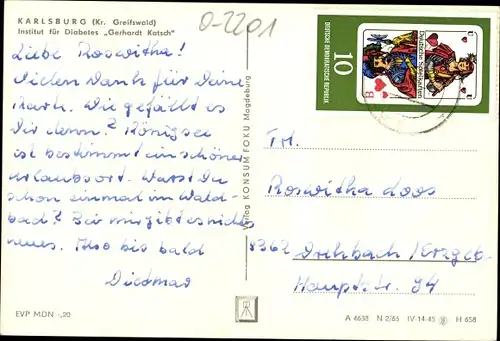 KARLSBURG (Kr. Greifswald)
Institut für Diabetes „Gerhardt Katsch"
O-2201
Liebe Roswitha!
Vielen Dank für Deine
Karte. Wie gefällt es
Dir denn? Königsee
ist bestimmt ein schöner
Urlaubsort. Warst Du
schon einmal im Wald-
bad? Bei mir gibt es nichts
neues. Also bis bald
Dietmar
EVP MDN -,20
Verlag KONSUM FOKU Magdeburg
DEUTSCHE DEMOKRATISCHE REPUBLIK
10
Deutsche Spielkarten
B
U
U
Frl.
Roswitha Loos
9362 Drehbach/Erzgeb.
Hauptstr. 94
A 4638 N 2/65 IV-14-45 H 658